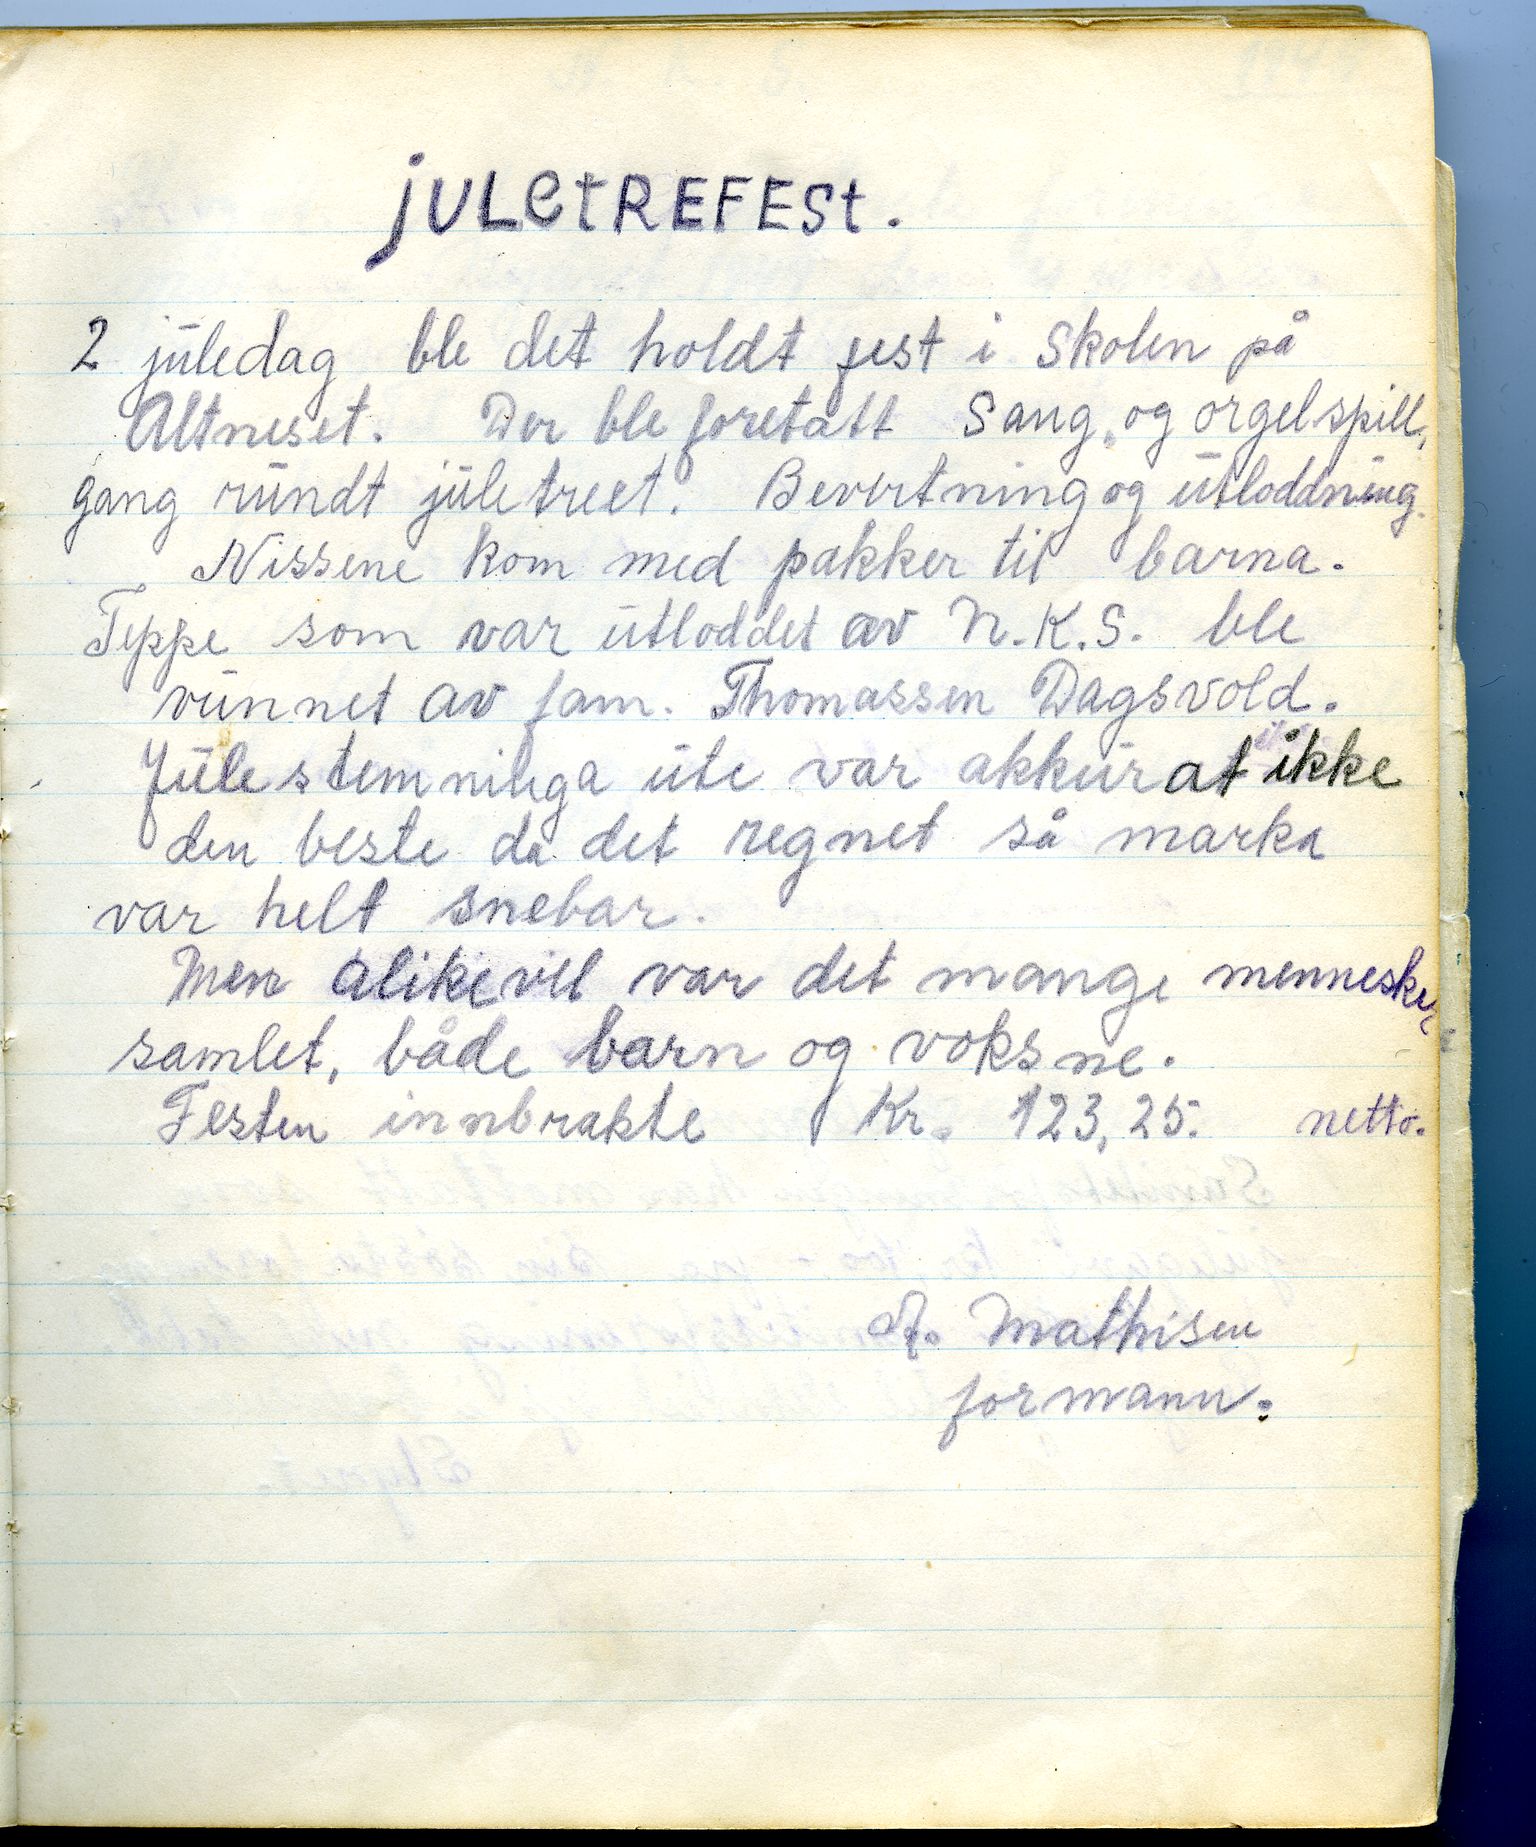 JULETREFEST.
2 juledag ble det holdt fest i Skolen på
Altneset. Der ble foretatt Sang, og orgelspill,
gang rundt juletreet. Bevertning og utloddning.
Nissene kom med pakker til barna.
Teppe som var utloddet av N.K.S. ble
vunnet av fam. Thomassen Dagsvold.
Julestemninga ute var akkurat ikke
den beste da det regnet så marka
var helt snebar.
Men alikevel var det mange mennesker
samlet, både barn og voksne.
Festen innbrakte Kr. 123,25. netto.
A. Mathisen
formann.